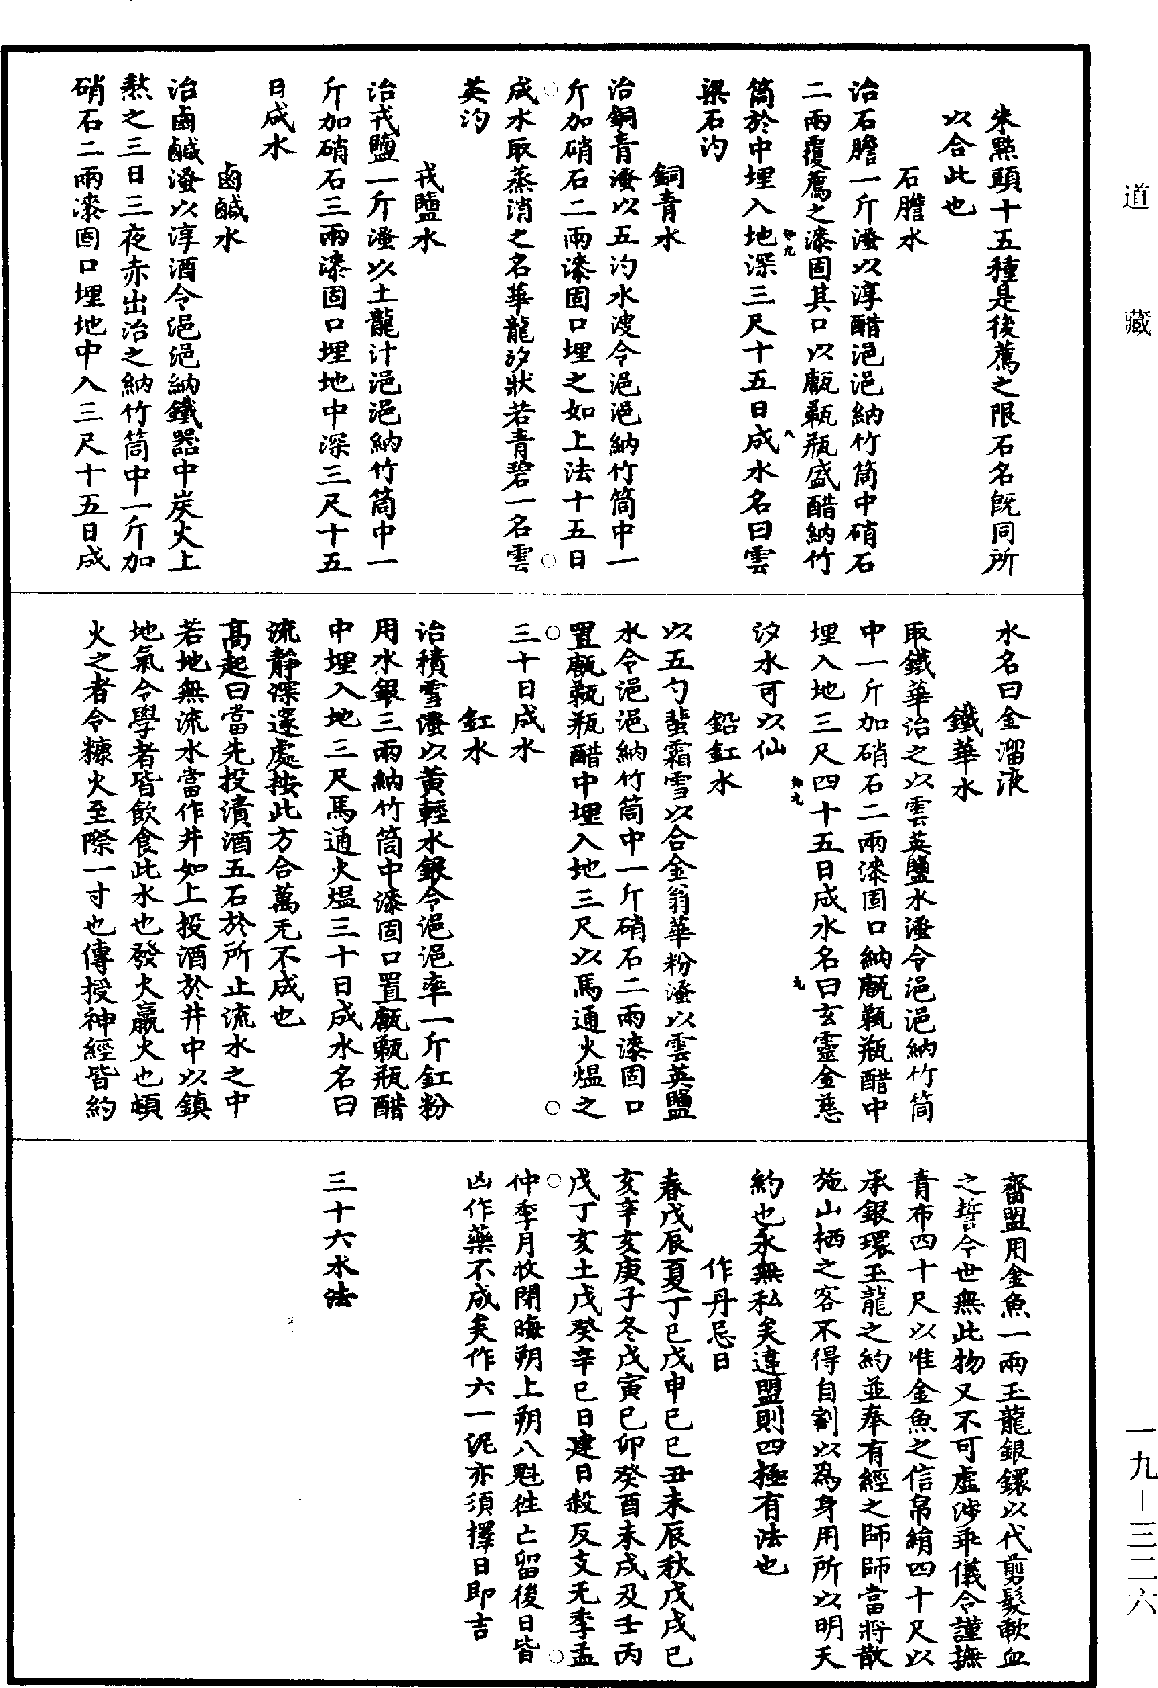 道藏
朱點頭十五種是後薦之限石名既同所
以合此也
石膽水
治石膽一斤溲以淳醋浥浥納竹筒中硝石
二兩覆薦之漆固其口以甗甄瓶盛醋納竹
筒於中埋入地深三尺十五日成水名曰雲
梁石汋
銅青水
治銅青溲以五汋水溲令浥浥納竹筒中一
斤加硝石二兩漆固口埋之如上法十五日
成水取蒸消之名華龍汐狀若青碧一名雲
英汋
戎鹽水
治戎鹽一斤溲以土龍汁浥浥納竹筒中一
斤加硝石三兩漆固口埋地中深三尺十五
日成水
鹵鹹水
治鹵鹹溲以淳酒令浥浥納鐵器中炭火上
熬之三日三夜赤出治之納竹筒中一斤加
硝石二兩漆固口埋地中入三尺十五日成
水名曰金溜液
鐵華水
取鐵華治之以雲英鹽水溲令浥浥納竹筒
中一斤加硝石二兩漆固口納甗甄瓶醋中
埋入地三尺四十五日成水名曰玄靈金慈
汐水可以仙
鉛釭水
以五勺蜚霜雪以合金翁華粉溲以雲英鹽
水令浥浥納竹筒中一斤硝石二兩漆固口
置甗甄瓶醋中埋入地三尺以馬通火熅之
三十日成水
釭水
治積雪溲以黃輕水銀令浥浥率一斤釭粉
用水銀三兩納竹筒中漆固口置甗甄瓶醋
中埋入地三尺馬通火熅三十日成水名曰
流靜深邃處按此方合萬无不成也
高起曰當先投漬酒五石於所止流水之中
若地無流水當作井如上投酒於井中以鎮
地氣令學者皆飲食此水也發火蠃火也頓
火之者令糠火至際一寸也傳授神經皆約
齋盟用金魚一兩玉龍銀鐶以代剪髮歃血
之誓今世無此物又不可虛涉乖儀令謹撫
青布四十尺以准金魚之信帛絹四十尺以
承銀環玉龍之約並奉有經之師師當將散
施山栖之客不得自割以為身用所以明天
約也永無私矣違盟則四極有法也
作丹忌日
春戊辰夏丁巳戊申巳巳丑未辰秋戊戌巳
亥辛亥庚子冬戊寅巳卯癸酉未戌及壬丙
戊丁亥土戊癸辛巳日建日殺反支无季孟
仲季月收閉晦朔上朔八魁往亡留後日皆
凶作藥不成矣作六一泥亦須擇日即吉
三十六水法
一九—三二六